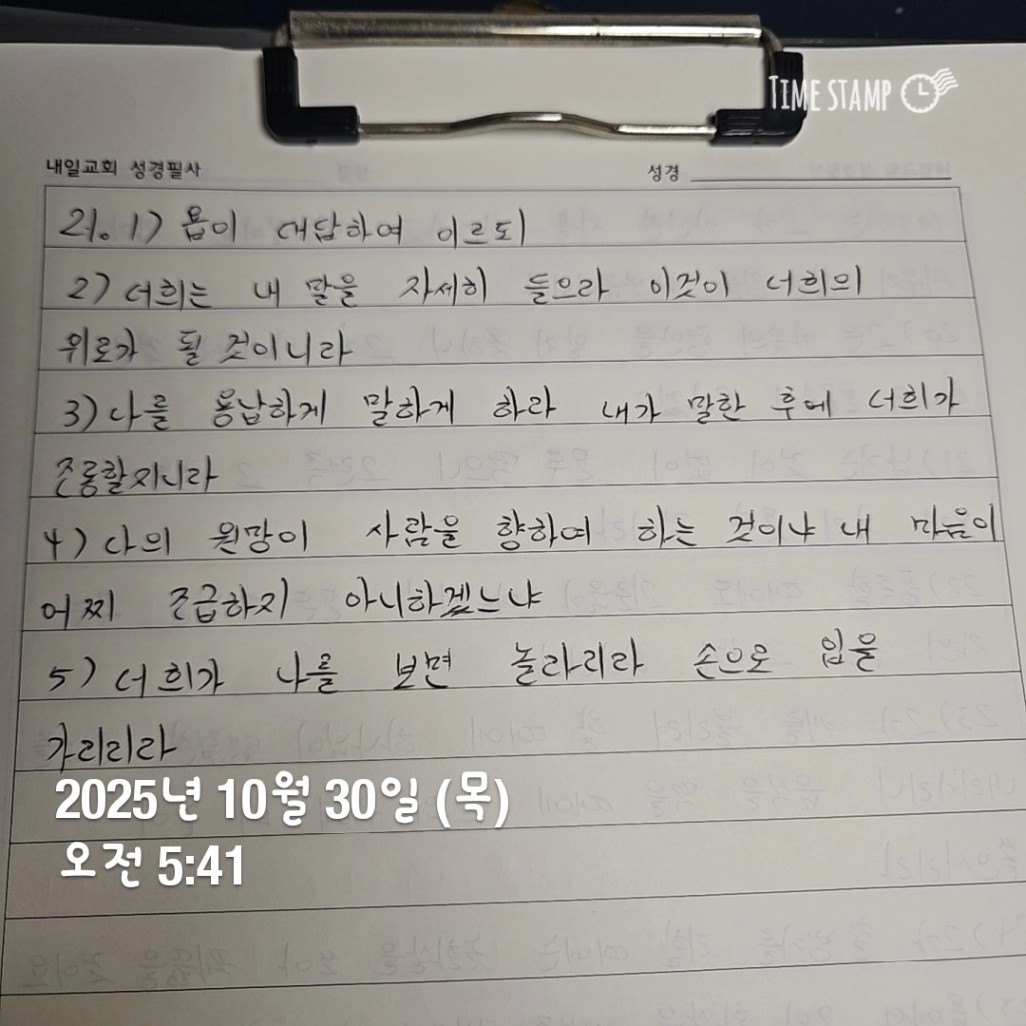 TIME STAMP
내일교회 성경필사 성경
21. 1) 욥이 대답하여 이르되
2) 너희는 내 말을 자세히 들으라 이것이 너희의
위로가 될 것이니라
3) 나를 용납하게 말하게 하라 내가 말한 후에 너희가
조롱할지니라
4) 나의 원망이 사람을 향하여 하는 것이냐 내 마음이
어찌 조급하지 아니하겠느냐
5) 너희가 나를 보면 놀라리라 손으로 입을
가리리라
2025년 10월 30일 (목)
오전 5:41